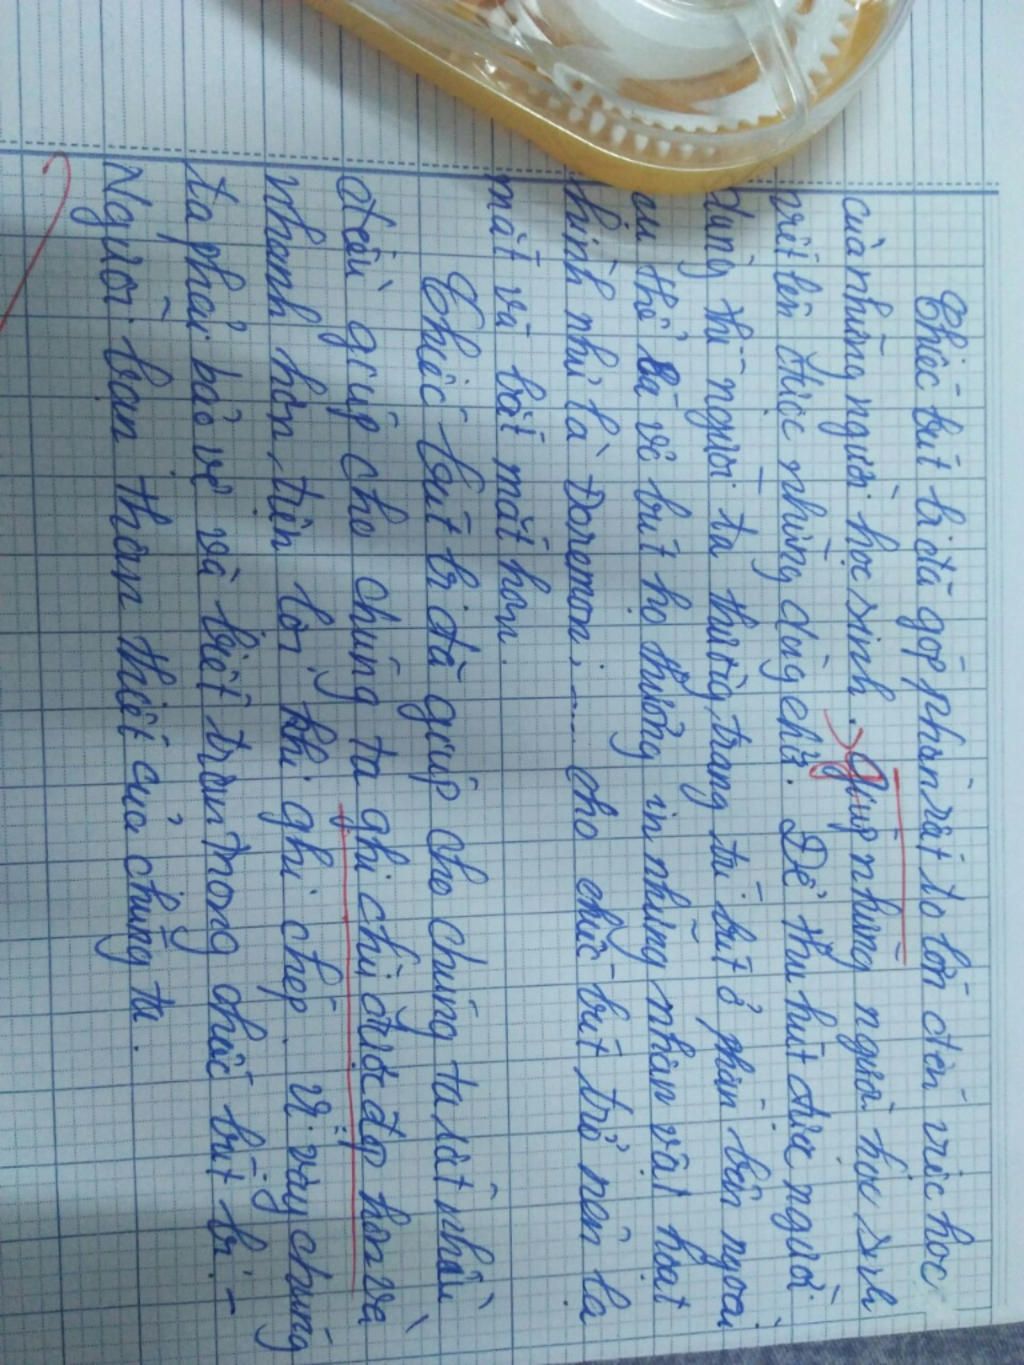 Chiếc bút bi đã góp phần rất to lớn đến việc học
của những người học sinh. Giúp những người học sinh
viết lên được những dòng chữ. Để thu hút được người
dùng thì người ta thường trang trí bút ở phần bên ngoài
thể là vỏ bút họ thường in những nhân vật hoạt
hình như là Doremon,.... cho chiếc bút trở nên lạ
mắt và bắt mắt hơn.
Chiếc bút bi đã giúp cho chúng ta rất nhiều
điều giúp cho chúng ta ghi chú được đẹp hơn và
nhanh hơn, tiện lợi khi ghi chép. Vì vậy chúng
ta phải bảo vệ và biết trân trọng chiếc bút bi -
Người bạn thân thiết của chúng ta.